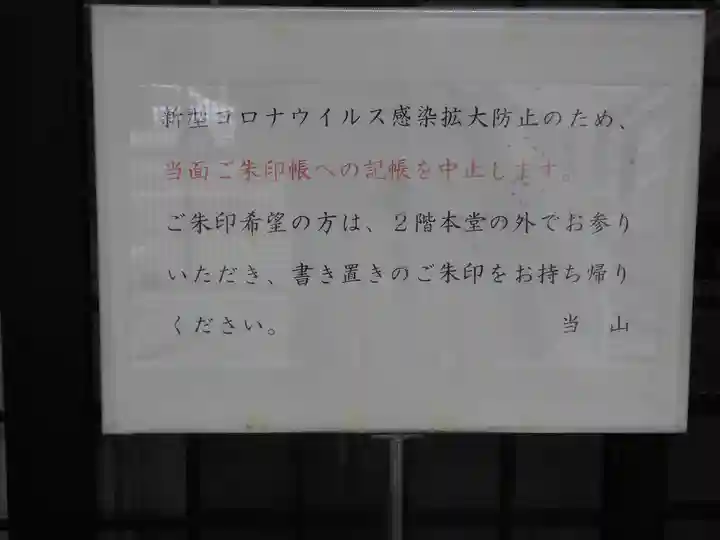 新型コロナウイルス感染拡大防止のため、
当面ご朱印帳への記帳を中止します。
ご朱印希望の方は、２階本堂の外でお参り
いただき、書き置きのご朱印をお持ち帰り
ください。　　　　　　　　　　　当　山